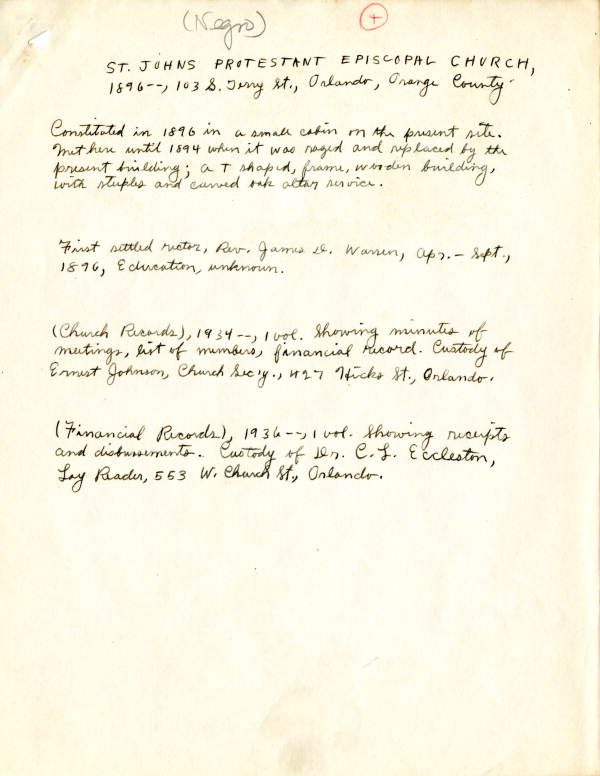 (Negro)
+
ST. JOHNS PROTESTANT EPISCOPAL CHURCH,
1896--, 103 S. Terry St., Orlando, Orange County
Constituted in 1896 in a small cabin on the present site.
Met here until 1894 when it was razed and replaced by the
present building; a T shaped, frame, wooden building,
with steeples and curved oak altar service.
First settled rector, Rev. James D. Warren, Apr. – Sept.,
1896, Education, unknown.
(Church Records), 1934--, 1 vol. Showing minutes of
meetings, list of members, financial record. Custody of
Ernest Johnson, Church Sec'y., 427 Hicks St., Orlando.
(Financial Records), 1936--, 1 vol. Showing receipts
and disbursements. Custody of Dr. C. L. Eccleston,
Lay Reader, 553 W. Church St., Orlando.